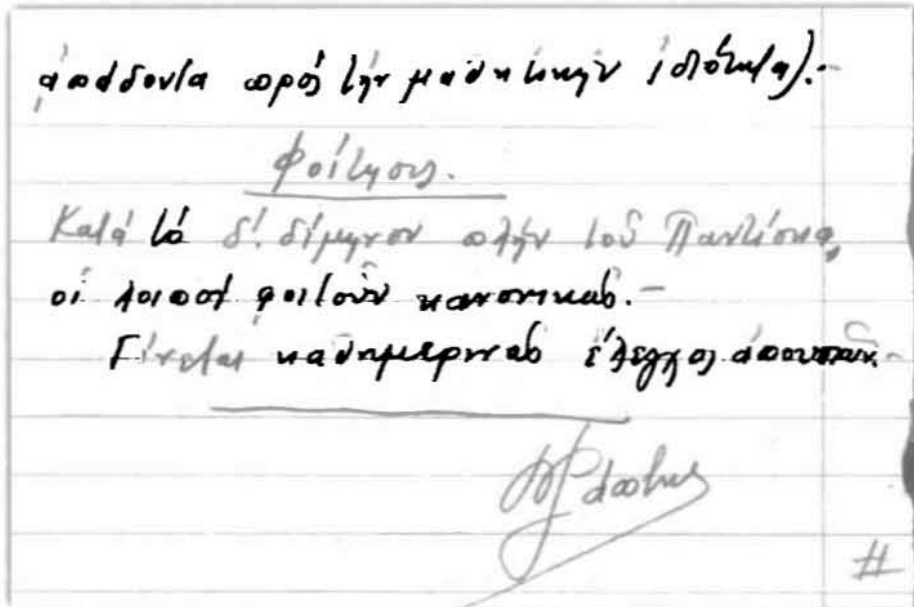 ἀπάδοντα πρός τήν μαθητικήν ἰδιότητα).-
Φοίτησις.
Κατά τό δ΄. δίμηνον πλήν τοῦ
οἱ λοιποί φοιτοῦν κανονικῶς.-
Γίνεται καθημερινῶς ἔλεγχος ἀπουσιῶν.-
#